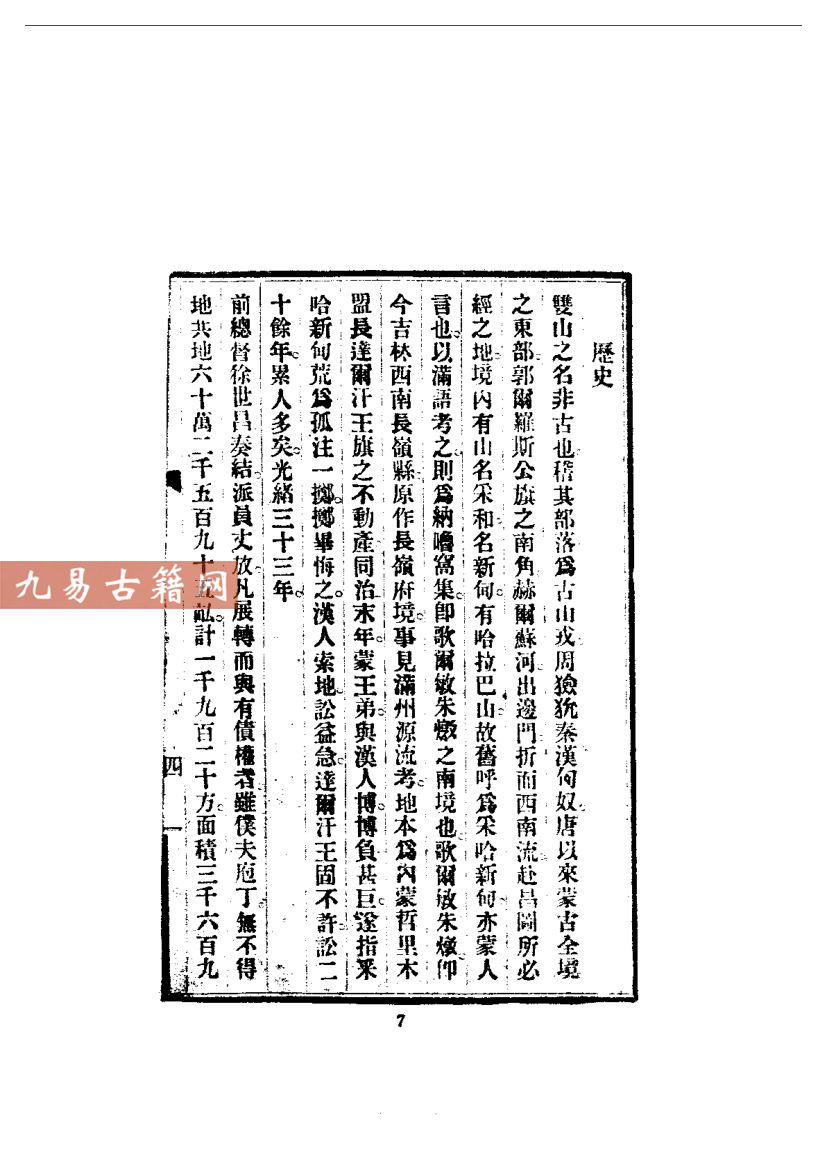 歷史
雙山之名非古也稽其部落爲古山戎周獫狁秦漢匈奴唐以來蒙古全境
之東部郭爾羅斯公旗之南角赫爾蘇河出邊門折而西南流赴昌圖所必
經之地境內有山名采和名新甸有哈拉巴山故舊呼爲采哈新甸亦蒙人
言也以滿語考之則爲納嚕窩集卽歌爾敏朱燉之南境也歌爾敏朱燉卽
今吉林西南長嶺縣原作長嶺府境事見滿州源流考地本爲內蒙哲里木
盟長達爾汗王旗之不動產同治末年蒙王弟與漢人博博負甚巨遂指采
哈新甸荒爲孤注一擲擲畢悔之漢人索地訟益急達爾汗王固不許訟二
十餘年累人多矣光緒三十三年
前總督徐世昌奏結派員丈放凡展轉而與有債權者雖僕夫庖丁無不得
地共地六十萬二千五百九十五畝計一千九百二十方面積三千六百九
四
7
九易古籍网